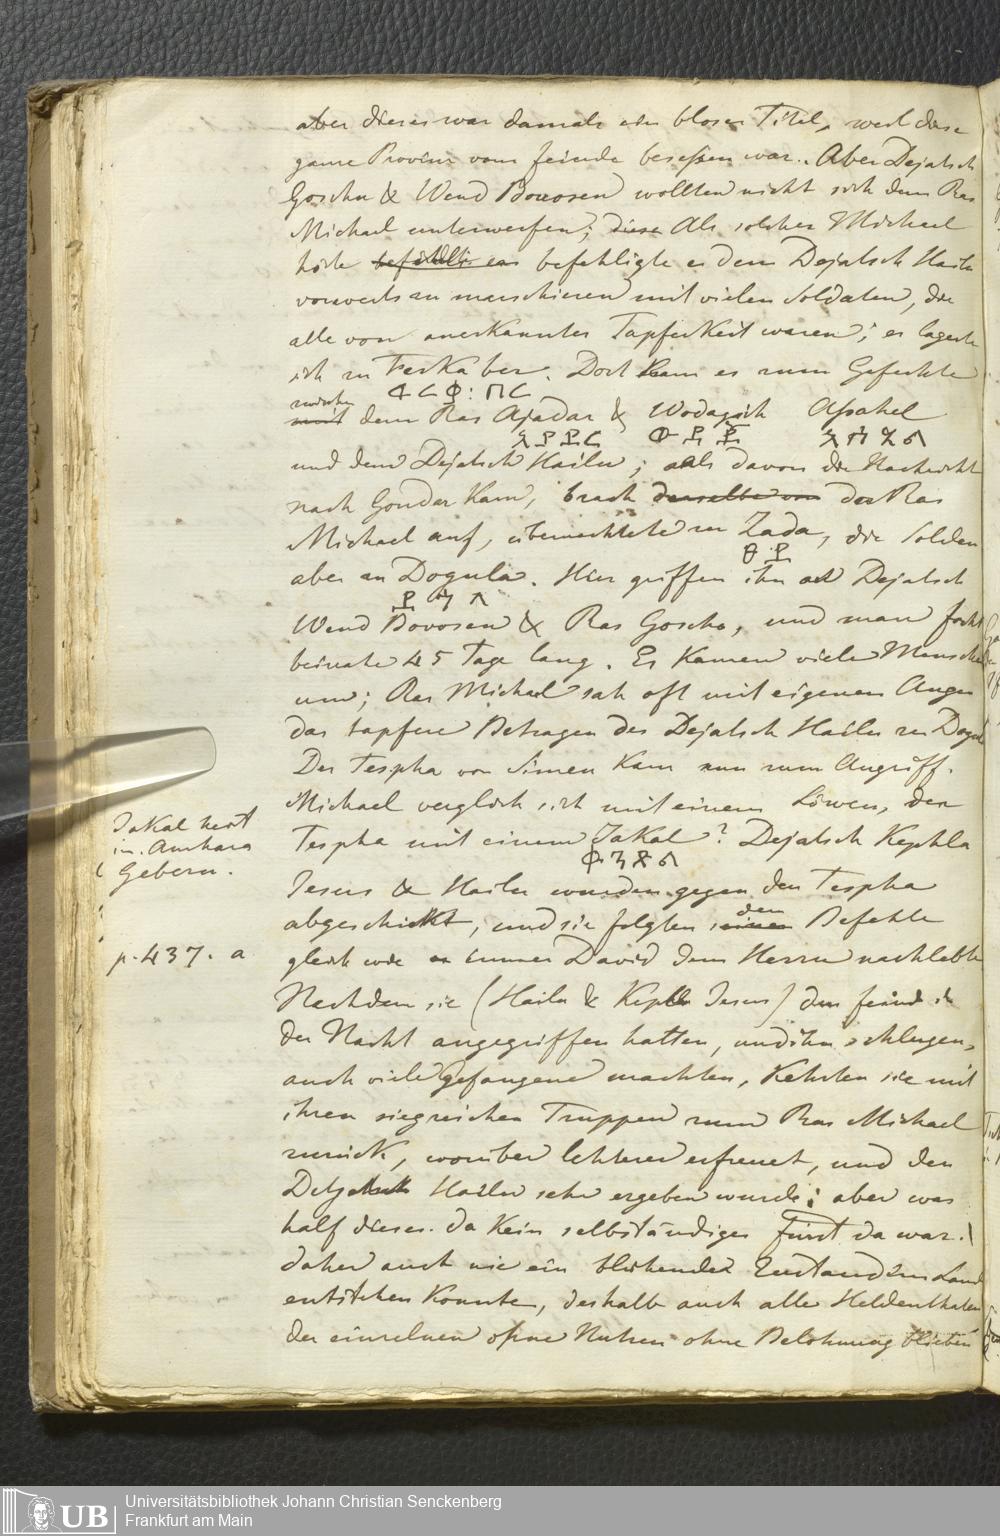 aber dieses war damals ein bloser Titel, weil diese
ganze Provinz vom feinde beseßen war. Aber Dejatsch
Goscho & Wend Bowosen wollten nicht sich dem Ras
Michael unterwerfen; diese Als solches Michael
hörte er befehligte er dem Dejatsch Hailu
vorwerts zu marschieren mit vielen Soldaten, die
alle von anerkannter Tapferkeit waren; er lagerte
sich zu Ferkaber. Dort kam es zum Gefechte
ፈርቃ፡በር
zwischen
mit dem Ras Ajadar & Wodagisch Apahel
und dem Dejatsch Hailu; als davon die Nachricht
nach Gondar kam, brach derselbe von der Ras
Michael auf, übernachtete zu Zada, die Solden
ፀዳ
aber zu Dogula. Hier griffen ihn Dejatsch
Wend Bovosen & Ras Goscho, und man focht
beinahe 45 Tage lang. Es kamen viele Menschen
um; Ras Michael sah oft mit eigenen Augen
das tapfere Betragen des Dejatsch Hailu zu Dogula
Der Tespha von Simen kam nun zum Angriff.
Michael verglich sich mit einem Löwen, den
Tespha mit einem Jakal? Dejatsch Kephla
Jakal heist
in Amhara
Gebern.
Jesus & Hailu wurden gegen den Tespha
abgeschickt, und sie folgten seinen den Befehle
p. 437. a
gleich wie immer David dem Herrn nachlebte
Nachdem sie (Hailu & Kephla Jesus) den feind in
der Nacht angegriffen hatten, und ihn schlugen,
auch viele Gefangene machten, kehrten sie mit
ihren siegreichen Truppen zum Ras Michael
zurück, worüber letzterer erfreuet, und den
Detjatsch Hailu sehr ergeben wurde; aber was
half dieses. da kein selbständiger Fürst da war.
daher auch nie ein blühender Zustand im Land
entstehen konnte, deshalb auch alle Heldenthaten
der einzelnen ohne Nutzen ohne Belohnung blieben
UB
Universitätsbibliothek Johann Christian Senckenberg
Frankfurt am Main